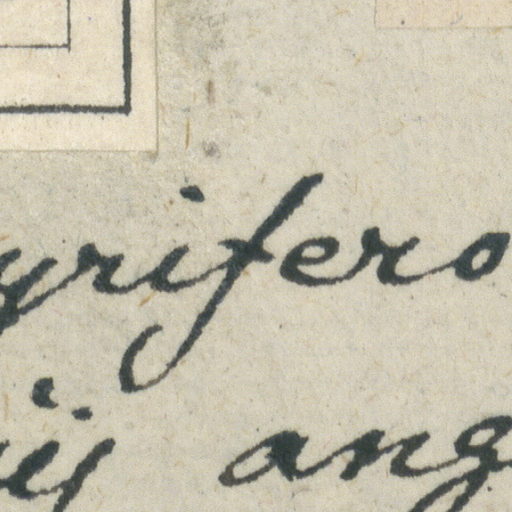 yrifero
ij ang